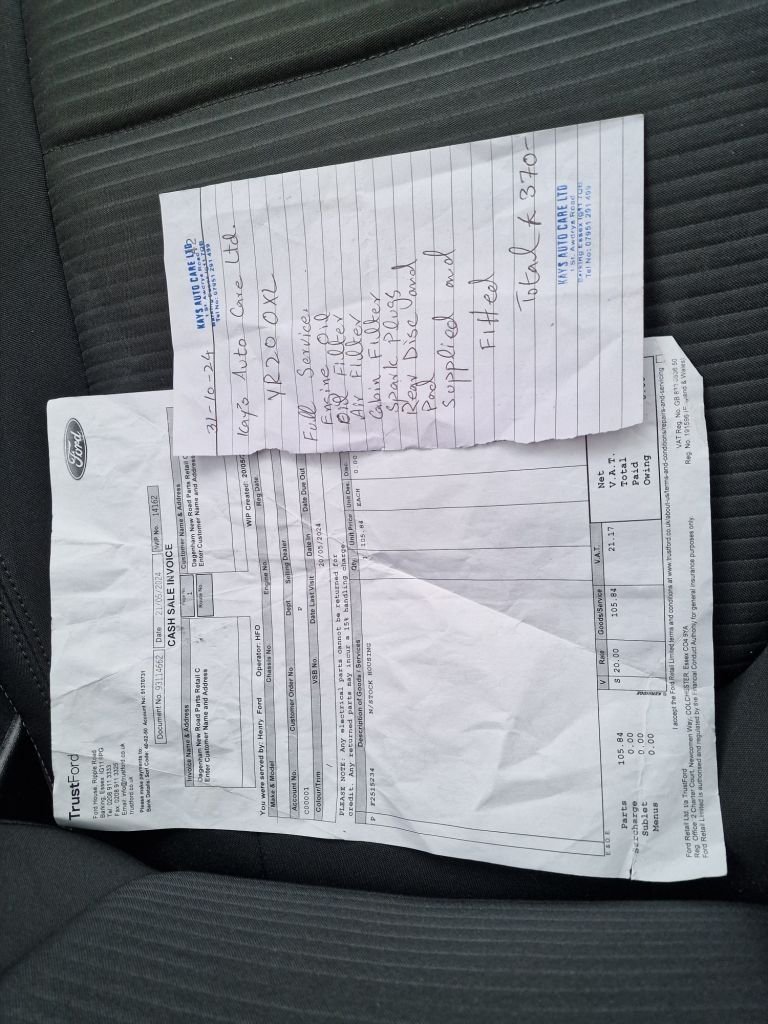 31-10-24
KAYS AUTO CARE LTD
1 St. Awdrys Road
Barking Essex IG11 7QB
Tel No: 07951 291 499
Kay's Auto Care Ltd
YR20 OXL
Full Service
Engine Oil
Oil Filter
Air Filter
Cabin Filter
Spark Plugs
Rear Disc and
Pad
Supplied and
Fitted
Total £ 370-
KAYS AUTO CARE LTD
1 St. Awdrys Road
Barking Essex IG11 7QB
Tel No: 07951 291 499
TrustFord
Ford
Ford House, Ripple Road
Barking, Essex IG11
Tel: 0208 911 3333
Fax: 0208 911 3325
trustford.co.uk
Please make payments to
Document No. 93114662 Date 21/05/2024 WIP No. 14162
CASH SALE INVOICE
Invoice Name & Address
Dagenham New Road Parts Retail C
Enter Customer Name and Address
Page No. 1
Route No.
Customer Name & Address
Dagenham New Road Parts Retail C
Enter Customer Name and Address
You were served by: Henry Ford Operator: HFO WIP Created: 20/05/
Make & Model Chassis No. Engine No. Reg Date
Account No. Customer Order No Dept Selling Dealer
C00001 P
Colour/Trim VSB No. Date Last Visit Date In Date Due Out
/ 20/05/2024
PLEASE NOTE: Any electrical parts cannot be returned for
credit. Any returned parts may incur a 15% handling charge.
Description of Goods / Services Qty Unit Price Unit Des. Disc
P F2515234 N/STOCK HOUSING 105.84 EACH 0.00
E & O E
Parts 105.84
Surcharge 0.00
Sublet 0.00
Menus 0.00
V Rate Goods/Service V.A.T.
S 20.00 105.84 21.17
Net
V.A.T.
Total
Paid
Owing
I accept the Ford Retail Limited terms and conditions at www.trustford.co.uk/about-us/terms-and-conditions/repairs-and-servicing
Ford Retail Ltd. t/a TrustFord
Reg. Office: 2 Charter Court, Newcomen Way, COLCHESTER, Essex CO4 9YA
Ford Retail Limited is authorised and regulated by the Financial Conduct Authority for general insurance purposes only.
VAT Reg. No. GB 811